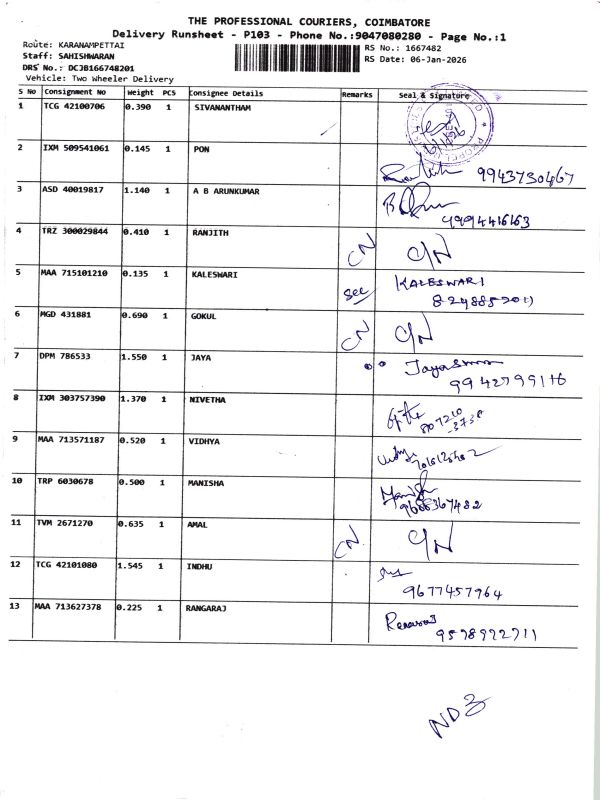 THE PROFESSIONAL COURIERS, COIMBATORE
Delivery Runsheet - P103 - Phone No.:9047080280 - Page No.:1
Route: KARANAMPETTAI RS No.: 1667482
Staff: SAHISHWARAN RS Date: 06-Jan-2026
DRS No.: DCJB166748201
Vehicle: Two Wheeler Delivery
S No Consignment No Weight PCS Consignee Details Remarks Seal & Signature
1 TCG 42100706 0.390 1 SIVANANTHAM
2 IXM 509541061 0.145 1 PON 9943730467
3 ASD 40019817 1.140 1 A B ARUNKUMAR 9994416163
4 TRZ 300029844 0.410 1 RANJITH CN C/N
5 MAA 715101210 0.135 1 KALESWARI See KALESWARI
6 MGD 431881 0.690 1 GOKUL CN C/N
7 DPM 786533 1.550 1 JAYA 9942799116
8 IXM 303757390 1.370 1 NIVETHA
9 MAA 713571187 0.520 1 VIDHYA
10 TRP 6030678 0.500 1 MANISHA Manish 9666367482
11 TVM 2671270 0.635 1 AMAL CN C/N
12 TCG 42101080 1.545 1 INDHU 9677457964
13 MAA 713627378 0.225 1 RANGARAJ 9578922711
ND3